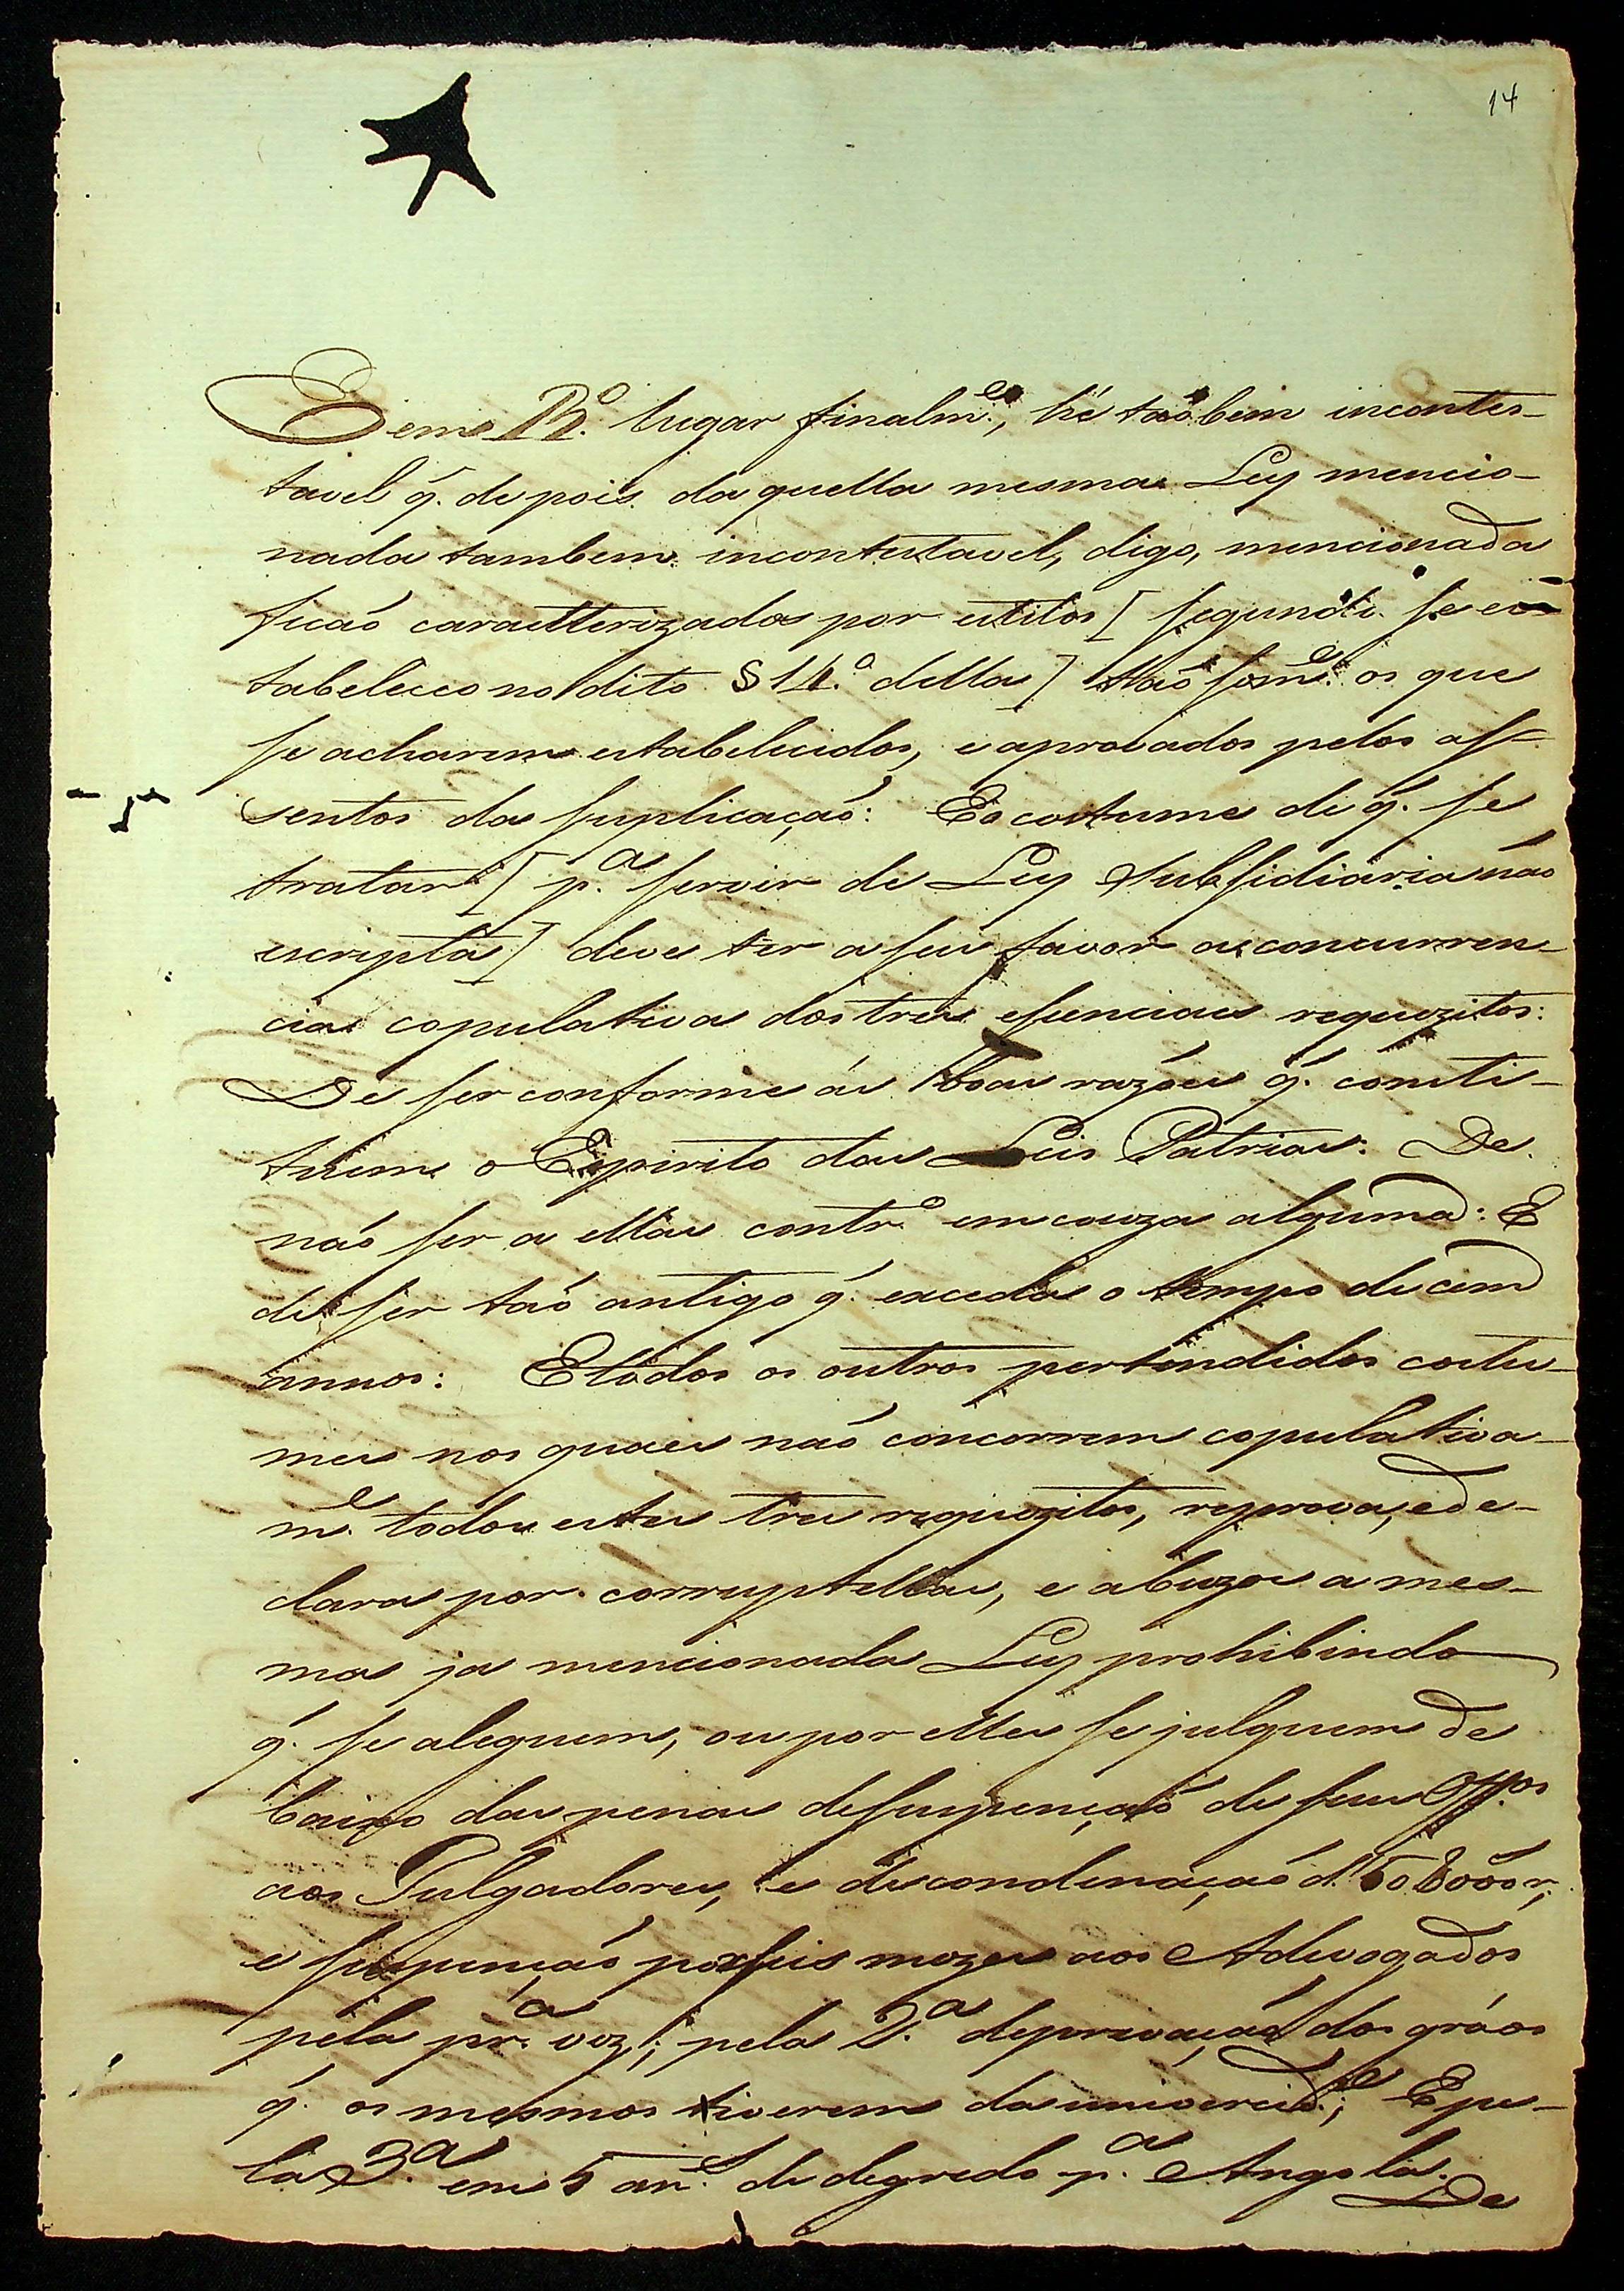 14
E em 13.º lugar finalm.e, hé taobem incontes-
tavel q. depois daquella mesma Ley mencio-
nada tambem incontestavel, digo, mencionada
ficaó caracterizados por estilos [ segundo se es-
tabeleceo no dito § 14.º della ] taó som.e os que
se acharem estabelecidos, e aprovados pelos as-
sentos da suplicaçaó: E o costume de q. se
tratar [ p.a servir de Ley Subsidiaria naó
escripta ] deve ter a seu favor a concurren-
cia copulativa dos tres esenciaes requezitos:
De ser conforme ás boas razóes q. consti-
tuem o Espirito das Leis Patrias: De
naó ser a ellas contr.o em couza alguma: E
de ser taó antigo q. exceda o tempo de cem
annos: E todos os outros pertendidos costu-
mes nos quaes naó concorrem copulativa-
m.e todos estes tres requezitos, reprova, e de-
clara por corruptellas, e abuzos a mes-
ma ja mencionada Ley prohibindo
q. se aleguem, ou por elles se julguem de
baixo das penas de suspençaó de seus Off.os
aos Julgadores, e de condenaçaó d. 50$000 r,
e suspençaó por seis mezes aos Advogados
pela pr.a vez; pela 2.a deprivaçaó dos gráos
q. os mesmos tiverem da univercid.e; E pe-
la 3.a em 5 an.s de degredo p.a Angola.
De